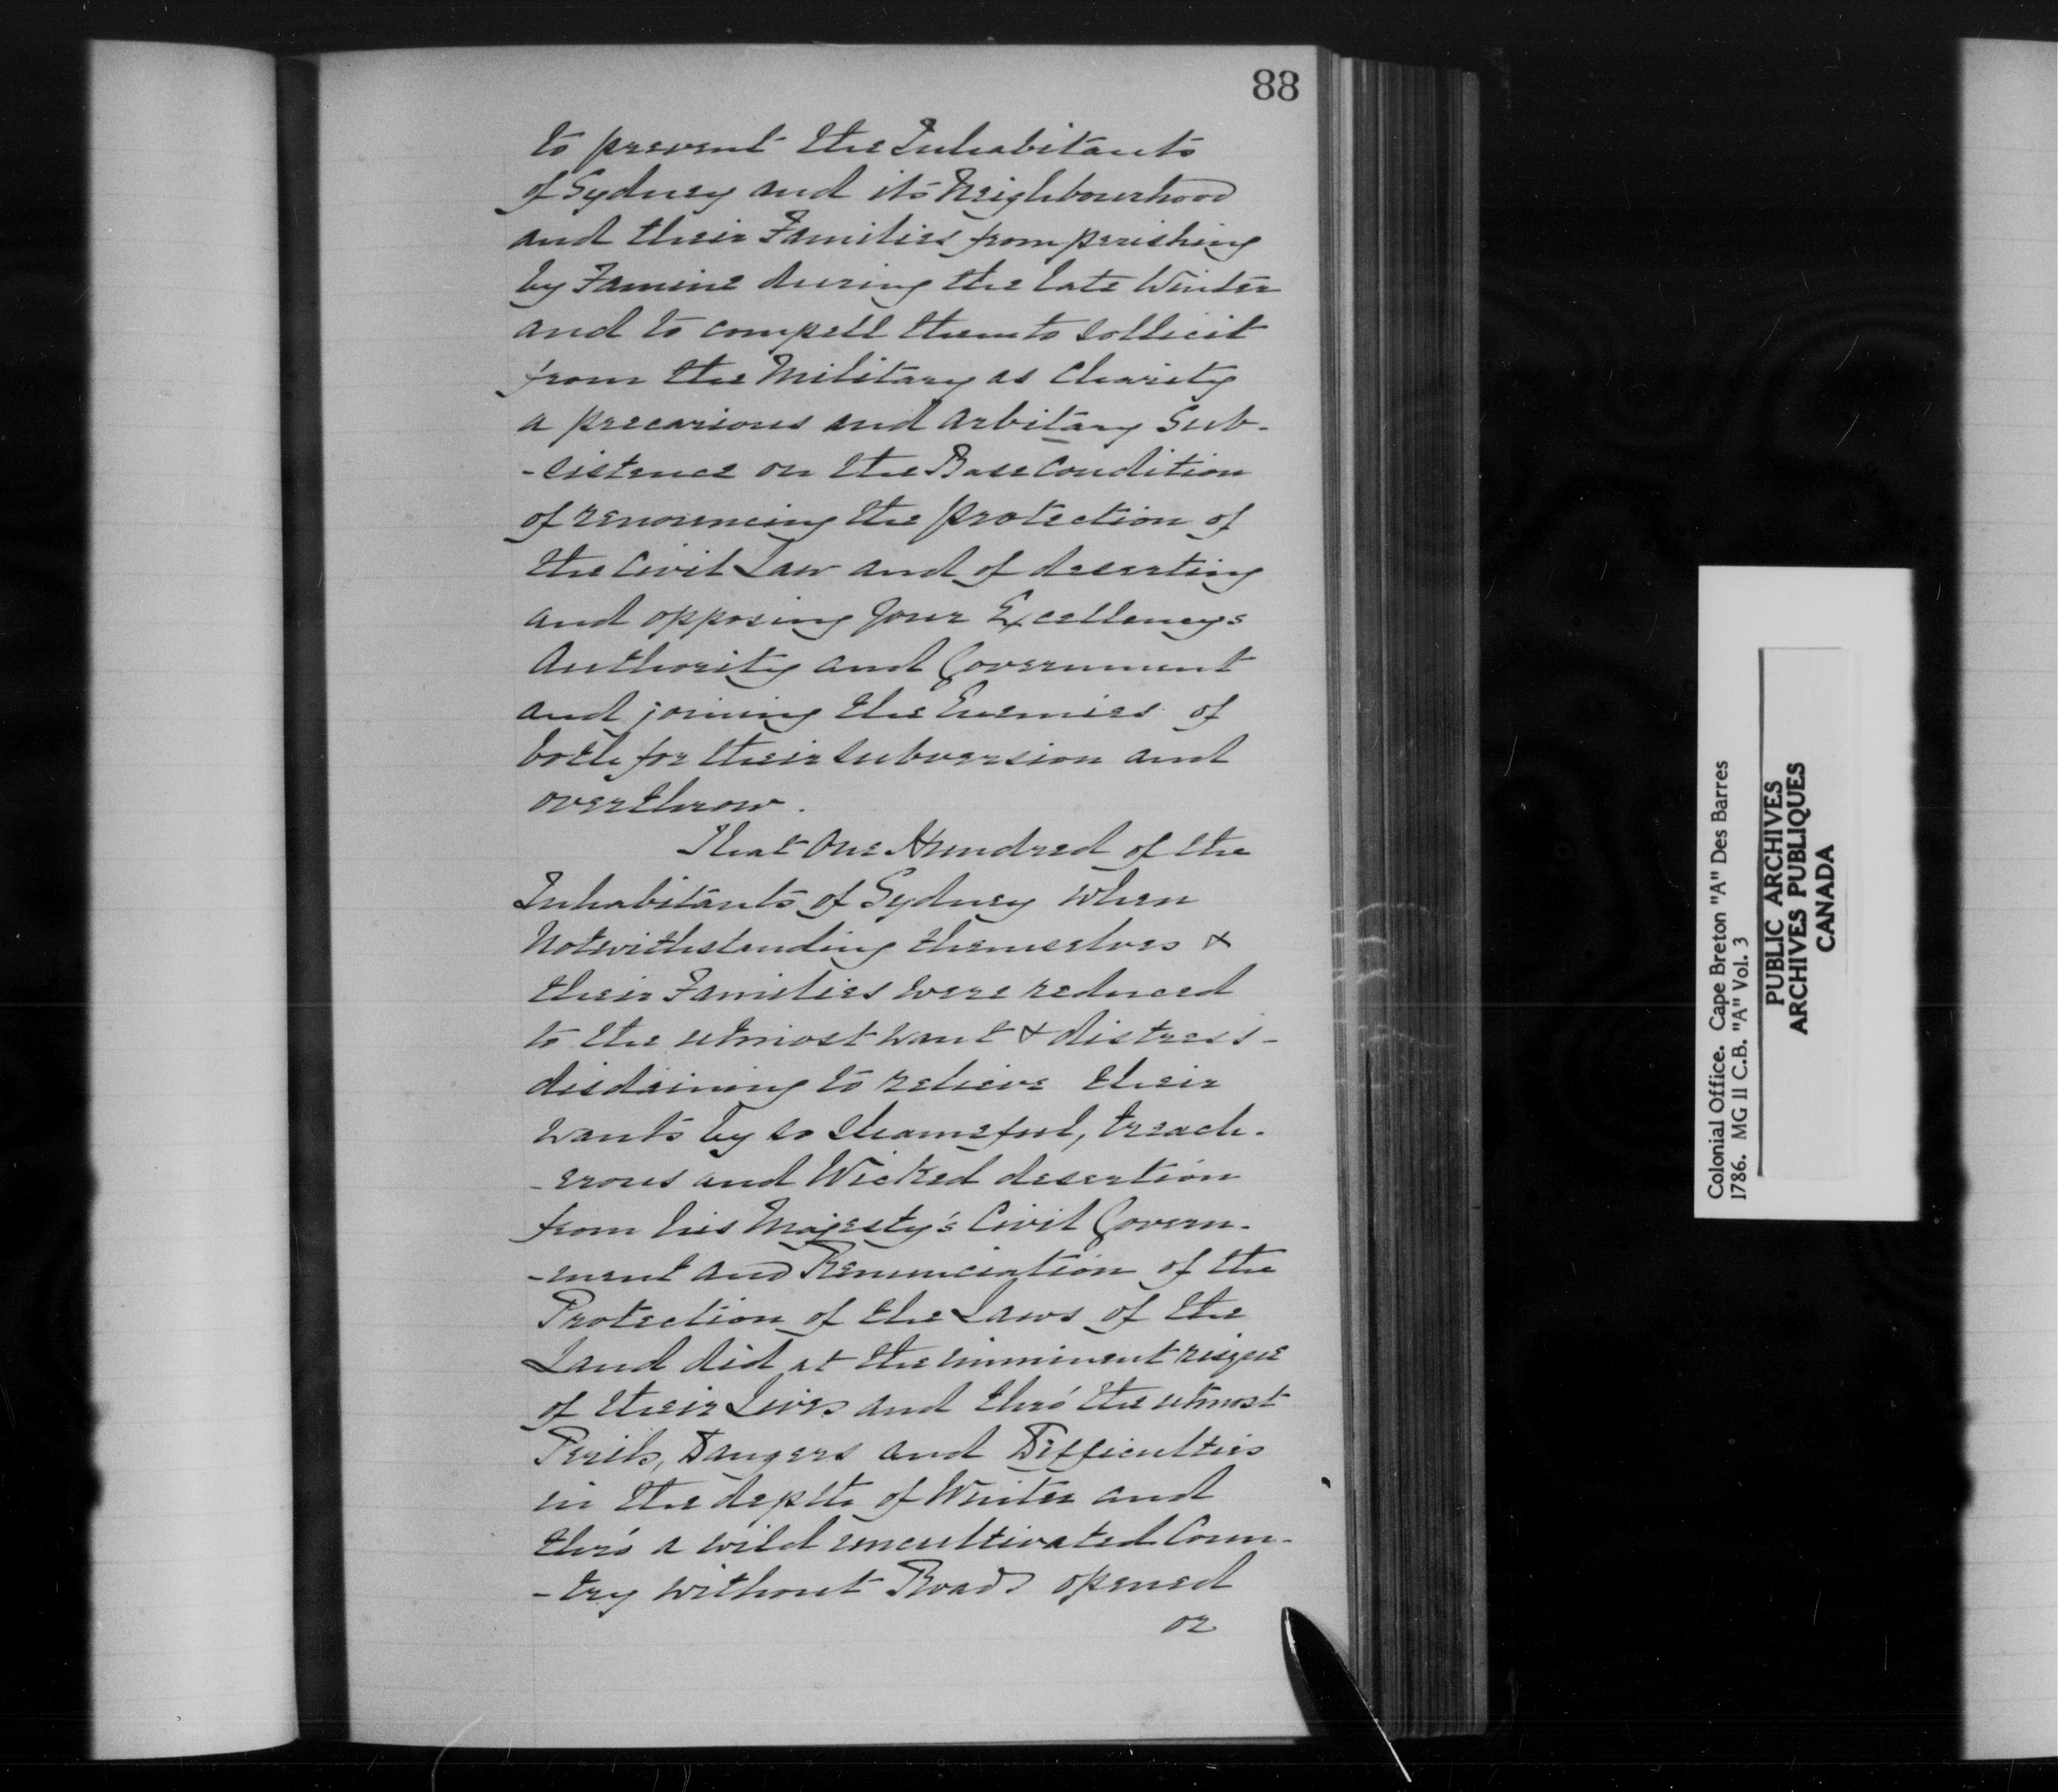 88
to prevent the Inhabitants
of Sydney and its Neighbourhood
and their Families from perishing
by Famine during the late Winter
and to compell them to sollicit
from the Military as Charity
a precarious and arbitary Sub-
-sistence on the Base Condition
of renouncing the protection of
the Civil Law and of deserting
and opposing Your Excellencys
Authority and Government
and joining the Enemies of
both for their subversion and
overthrow.
That One Hundred of the
Inhabitants of Sydney when
Notwithstanding themselves &
their Families were reduced
to the utmost want & distress -
disdaining to relieve their
wants by so shameful, treach-
-erous and Wicked desertion
from his Majesty's Civil Govern-
-ment and Renunciation of the
Protection of the Laws of the
Land did at the imminent risque
of their Lives and thro' the utmost
Perils, Dangers and Difficulties
in the depth of Winter and
thro' a wild uncultivated Coun-
-try without Roads opened
or
Colonial Office. Cape Breton "A" Des Barres
1786. MG 11 C.B. "A" Vol. 3
PUBLIC ARCHIVES
ARCHIVES PUBLIQUES
CANADA